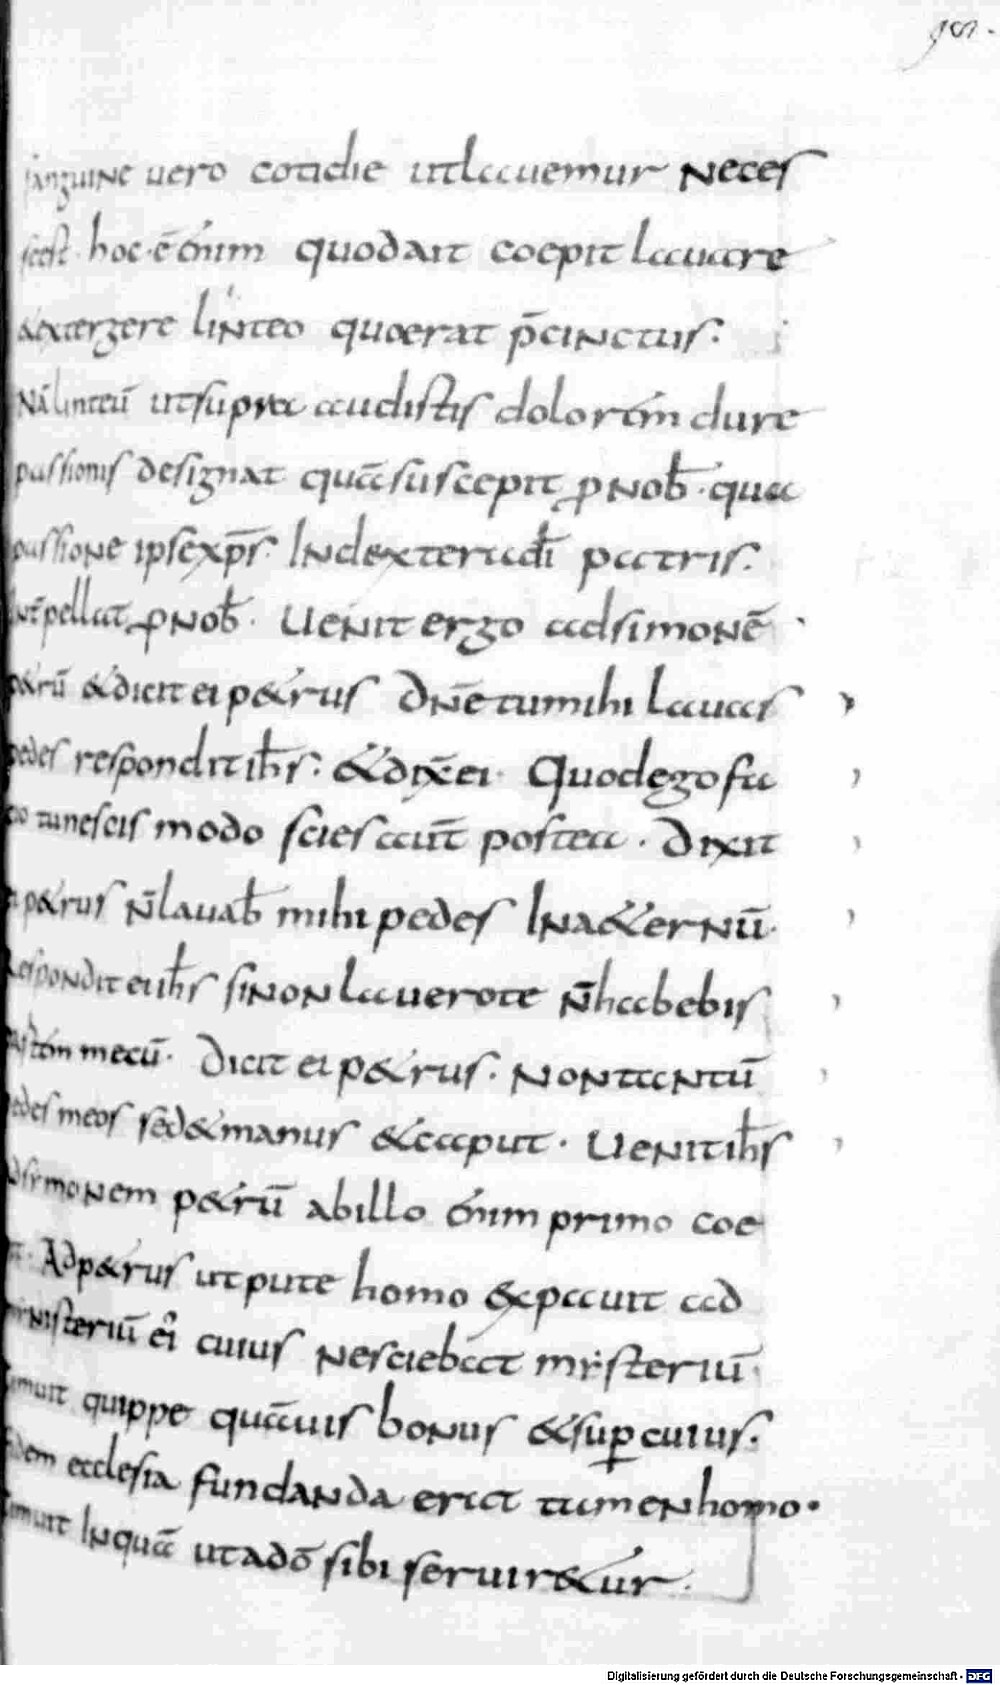 98.
sanguine uero cotidie ut lauemur neces
se est. hoc · ē enim quod ait coepit lauare
& extergere linteo quo erat p̄cinctus:
Nā linteū ut supra audistis dolorem dure
passionis designat quā suscepit ꝓ nob̄ · qua
passione ipse xp̄s: In dextera dī patris:
int̄pellat ꝓ nob̄ · Uenit ergo ad simonē
p&rū & dicit ei p&rus Dn̄e tu mihi lauas
pedes respondit ih̄s: & dix̄ ei · Quod ego fa
cio tu nescis modo scies aūt postea · Dixit
ei p&rus n̄ lauab̄ mihi pedes In a&ernū ·
Respondit ei ih̄s si non lauero te n̄ habebis
partem mecū · Dicit ei p&rus · non tantū
pedes meos sed & manus & caput · Uenit ih̄s
ad simonem p&rū ab illo enim primo coe
pit · Ad p&rus ut pute homo expauit ad
ministeriū ei cuius nesciebat mysteriū ·
timuit quippe quāuis bonus & sup̱ cuius ·
fidem ecclesia fundanda erat tamen homo ·
timuit Inquā ut a dō sibi seruir&ur ·
Digitalisierung gefördert durch die Deutsche Forschungsgemeinschaft - DFG